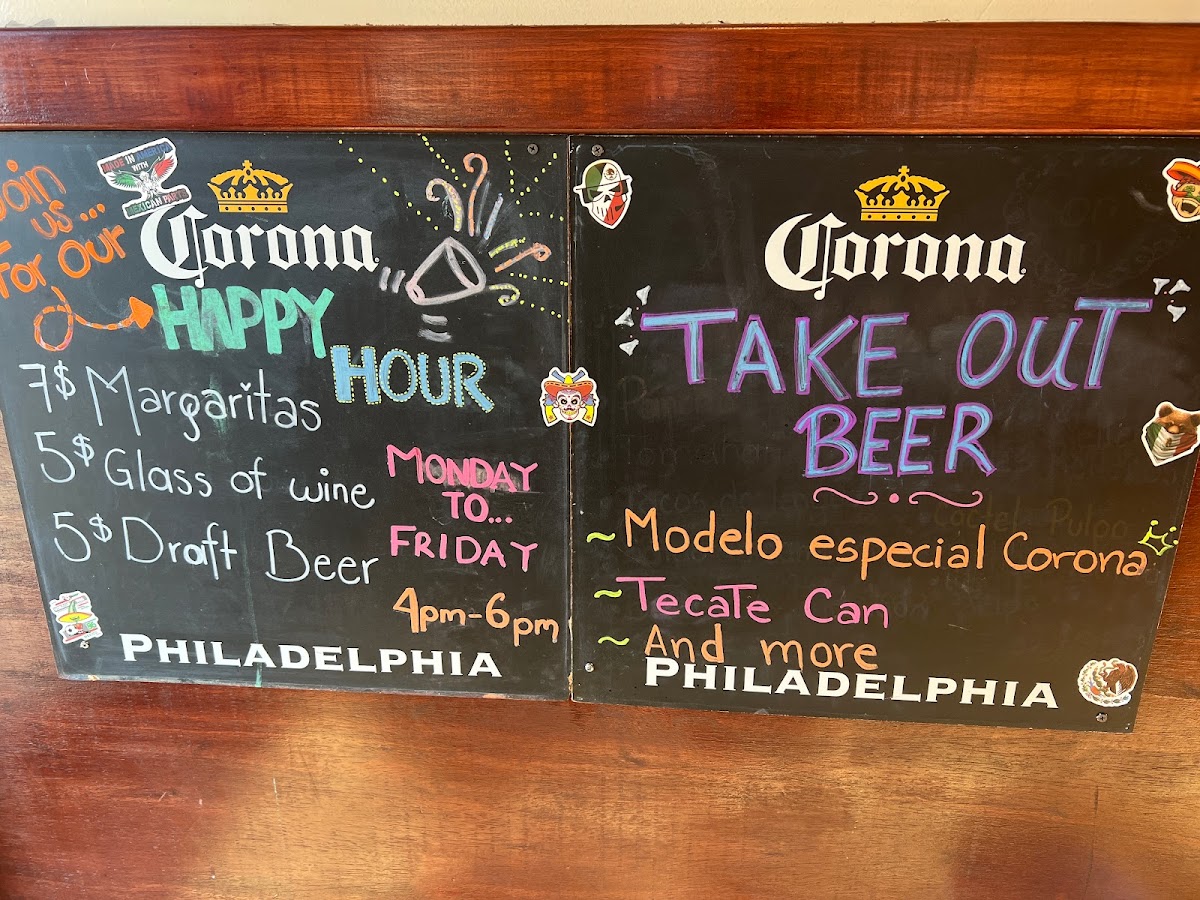 Join
us...
For our
MADE IN AMERICA
WITH
MEXICAN PARTS
Corona
HAPPY
HOUR
7$ Margaritas
5$ Glass of wine
5$ Draft Beer
MONDAY
TO...
FRIDAY
4pm-6pm
PHILADELPHIA
Corona
TAKE OUT
BEER
~Modelo especial Corona
~Tecate Can
~ And more
PHILADELPHIA